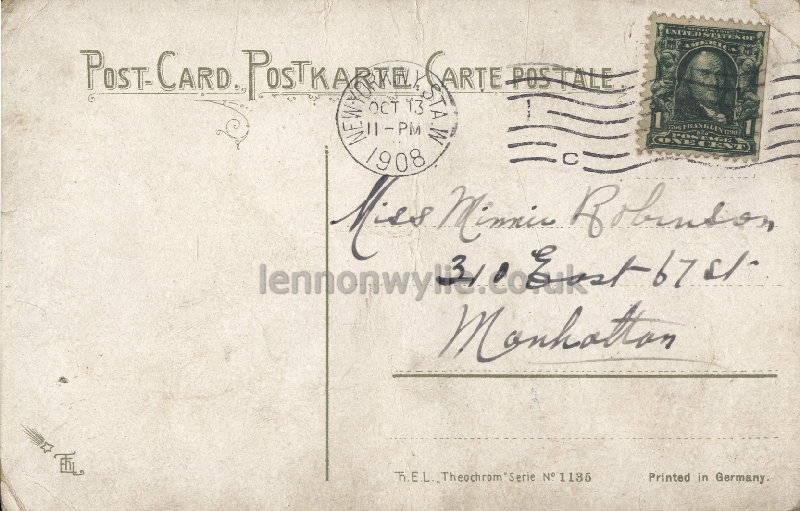 POST-CARD. POSTKARTE. CARTE POSTALE
NEW YORK, N.Y. STA. W
OCT 13
11-PM
1908
C
SERIES 1902
UNITED STATES OF
AMERICA
1 1706 FRANKLIN 1790 1
POSTAGE
ONE CENT
Miss Minnie Robinson
310 East 67 St
Manhattan
lennonwylie.co.uk
T.S.E.L. „Theochrom" Serie Nº 1135
Printed in Germany.